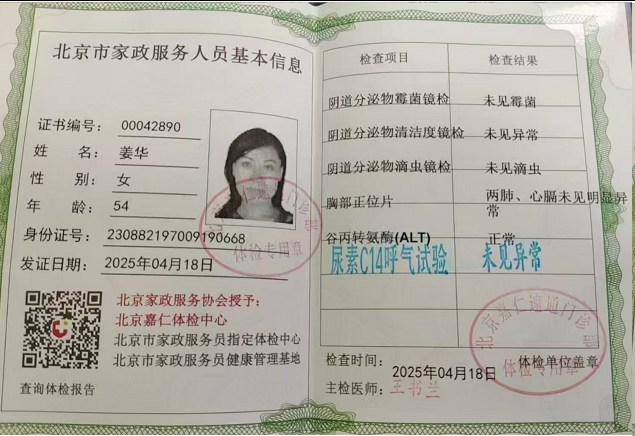 北京市家政服务人员基本信息
证书编号： 00042890
姓 名： 姜华
性 别： 女
年 龄： 54
身份证号： 230882197009190668
发证日期： 2025年04月18日
体检专用章
北京家政服务协会授予：
北京嘉仁体检中心
北京市家政服务员指定体检中心
北京市家政服务员健康管理基地
查询体检报告
检查项目 检查结果
阴道分泌物霉菌镜检 未见霉菌
阴道分泌物清洁度镜检 未见异常
阴道分泌物滴虫镜检 未见滴虫
胸部正位片 两肺、心膈未见明显异
常
谷丙转氨酶(ALT) 正常
尿素C14呼气试验 未见异常
检查时间： 2025年04月18日
体检单位盖章
主检医师： 王书兰
体检专用章